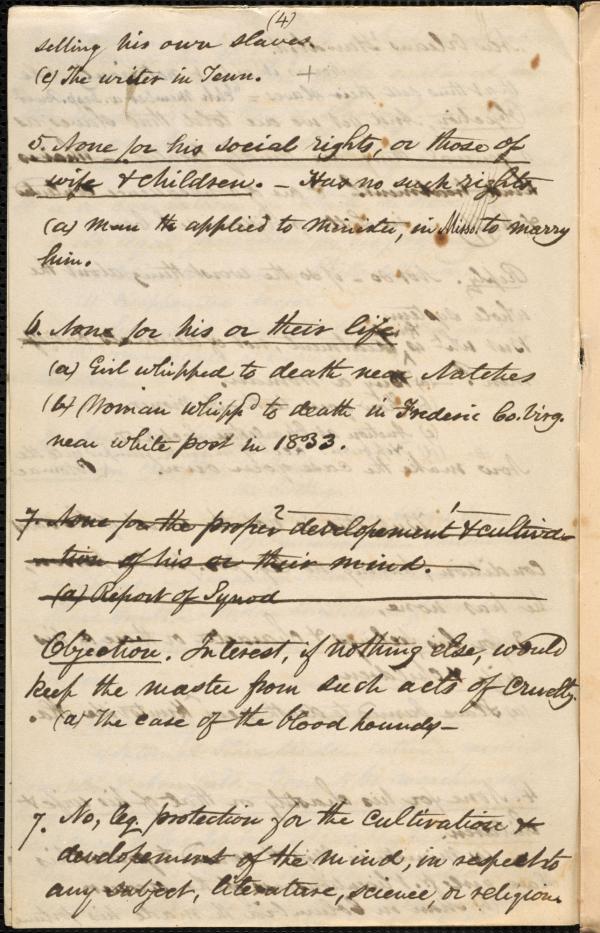 (4)
selling his own slaves
(c) The writer in Tenn. +
5. None for his social rights, or those of
wife & children. – Has no such rights
(a) man applied to minister, in Misso. to marry
him.
6. None for his or their life.
(a) Girl whipped to death near Natches
(b) Woman whippd to death in Frederic Co. Virg.
near white post in 1833.
7. None for the proper developement & cultiva-
tion of his or their mind.
(a) Report of Synod
Objection. Interest, if nothing else, would
keep the master from such acts of cruelty.
(a) The case of the blood hounds –
7. No, leg. protection for the cultivation &
developement of the mind, in respect to
any subject, literature, science, or religion